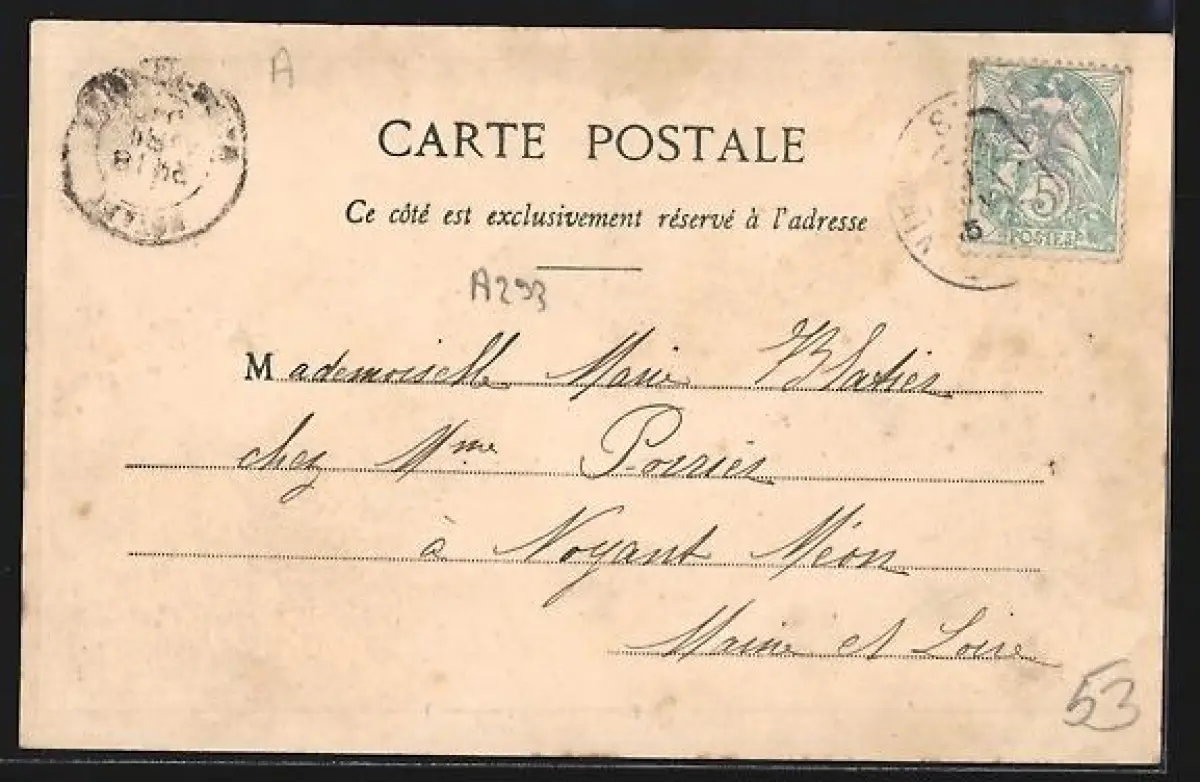 A
CARTE POSTALE
Ce côté est exclusivement réservé à l'adresse
A293
5
POSTES
Mademoiselle Marie Blatier
chez Mme Poirier
à Noyant Méon
Maine et Loire
53